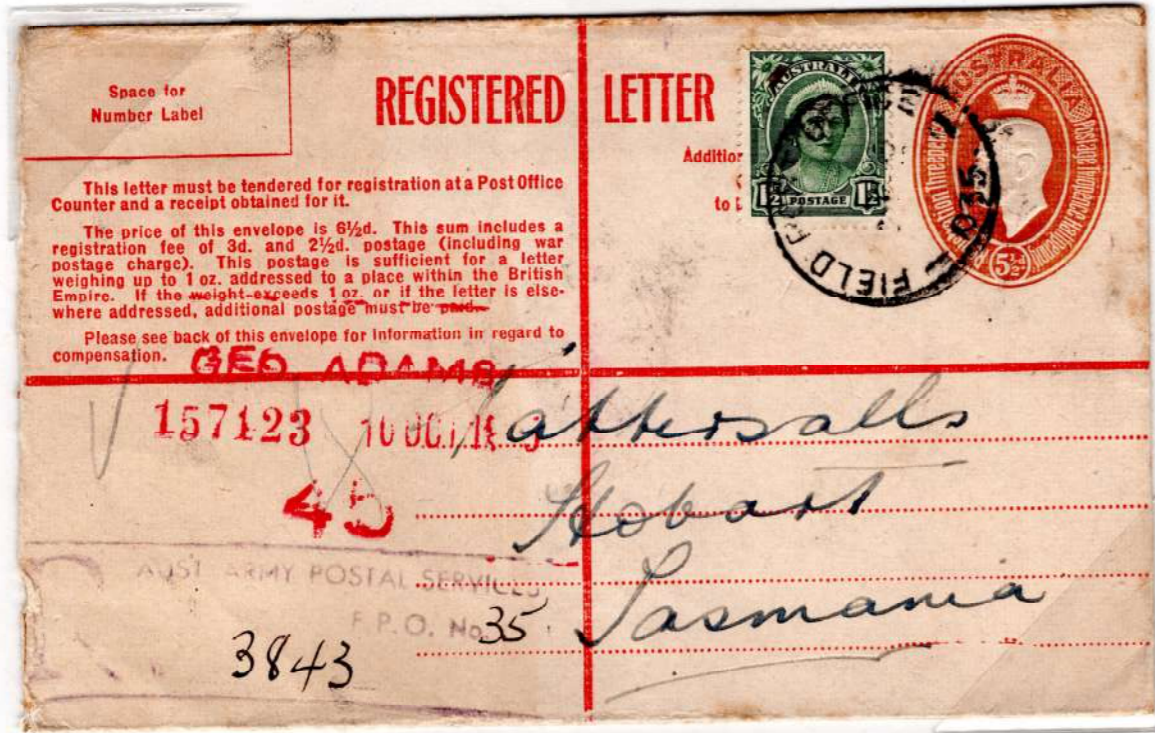 Space for
Number Label
REGISTERED LETTER
Addition
to
This letter must be tendered for registration at a Post Office
Counter and a receipt obtained for it.
The price of this envelope is 6½d. This sum includes a
registration fee of 3d. and 2½d. postage (including war
postage charge). This postage is sufficient for a letter
weighing up to 1 oz. addressed to a place within the British
Empire. If the weight exceeds 1 oz. or if the letter is else-
where addressed, additional postage must be paid.
Please see back of this envelope for information in regard to
compensation.
AUSTRALIA
1½ POSTAGE 1½
FIELD
035
AUSTRALIA
Postage Twopence Halfpenny
5½d
GEO. ADAMS
157123 10 OCT
45
Tattersalls
Hobart
Tasmania
R
AUST ARMY POSTAL SERVICES
F.P.O. No 35
3843